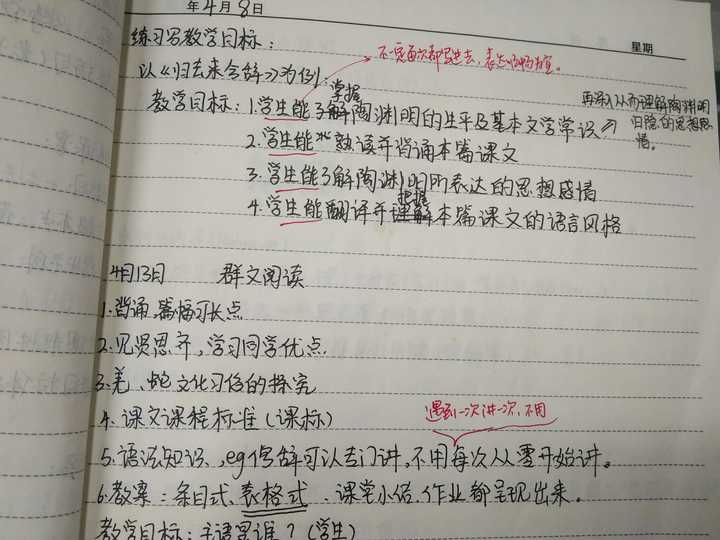 年4月8日
星期
练习写教学目标：
不一定每次都写进去，表达明确为宜。
以《归去来兮辞》为例：
掌握
教学目标：1.学生能了解陶渊明的生平及基本文学常识
再深入从而理解陶渊明
归隐的思想感
情。
2.学生能 熟读并背诵本篇课文
3.学生能了解陶渊明所表达的思想感情
把握
4.学生能翻译并理解本篇课文的语言风格
4月13日 群文阅读
1.背诵，篇幅可长点
2.见贤思齐，学习同学优点.
3.羌、蛇文化习俗的探究
4.课文课程标准（课标）
遇到一次讲一次，不用
5.语法知识，eg倒辞可以专门讲，不用每次从零开始讲。
6.教案：条目式、表格式、课堂小结.作业都呈现出来。
教学目标：主语是谁？（学生）